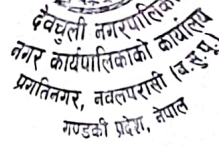 देवचुली नगरपालिका
नगर कार्यपालिकाको कार्यालय
प्रगतिनगर, नवलपरासी (ब.सु.पू.)
गण्डकी प्रदेश, नेपाल